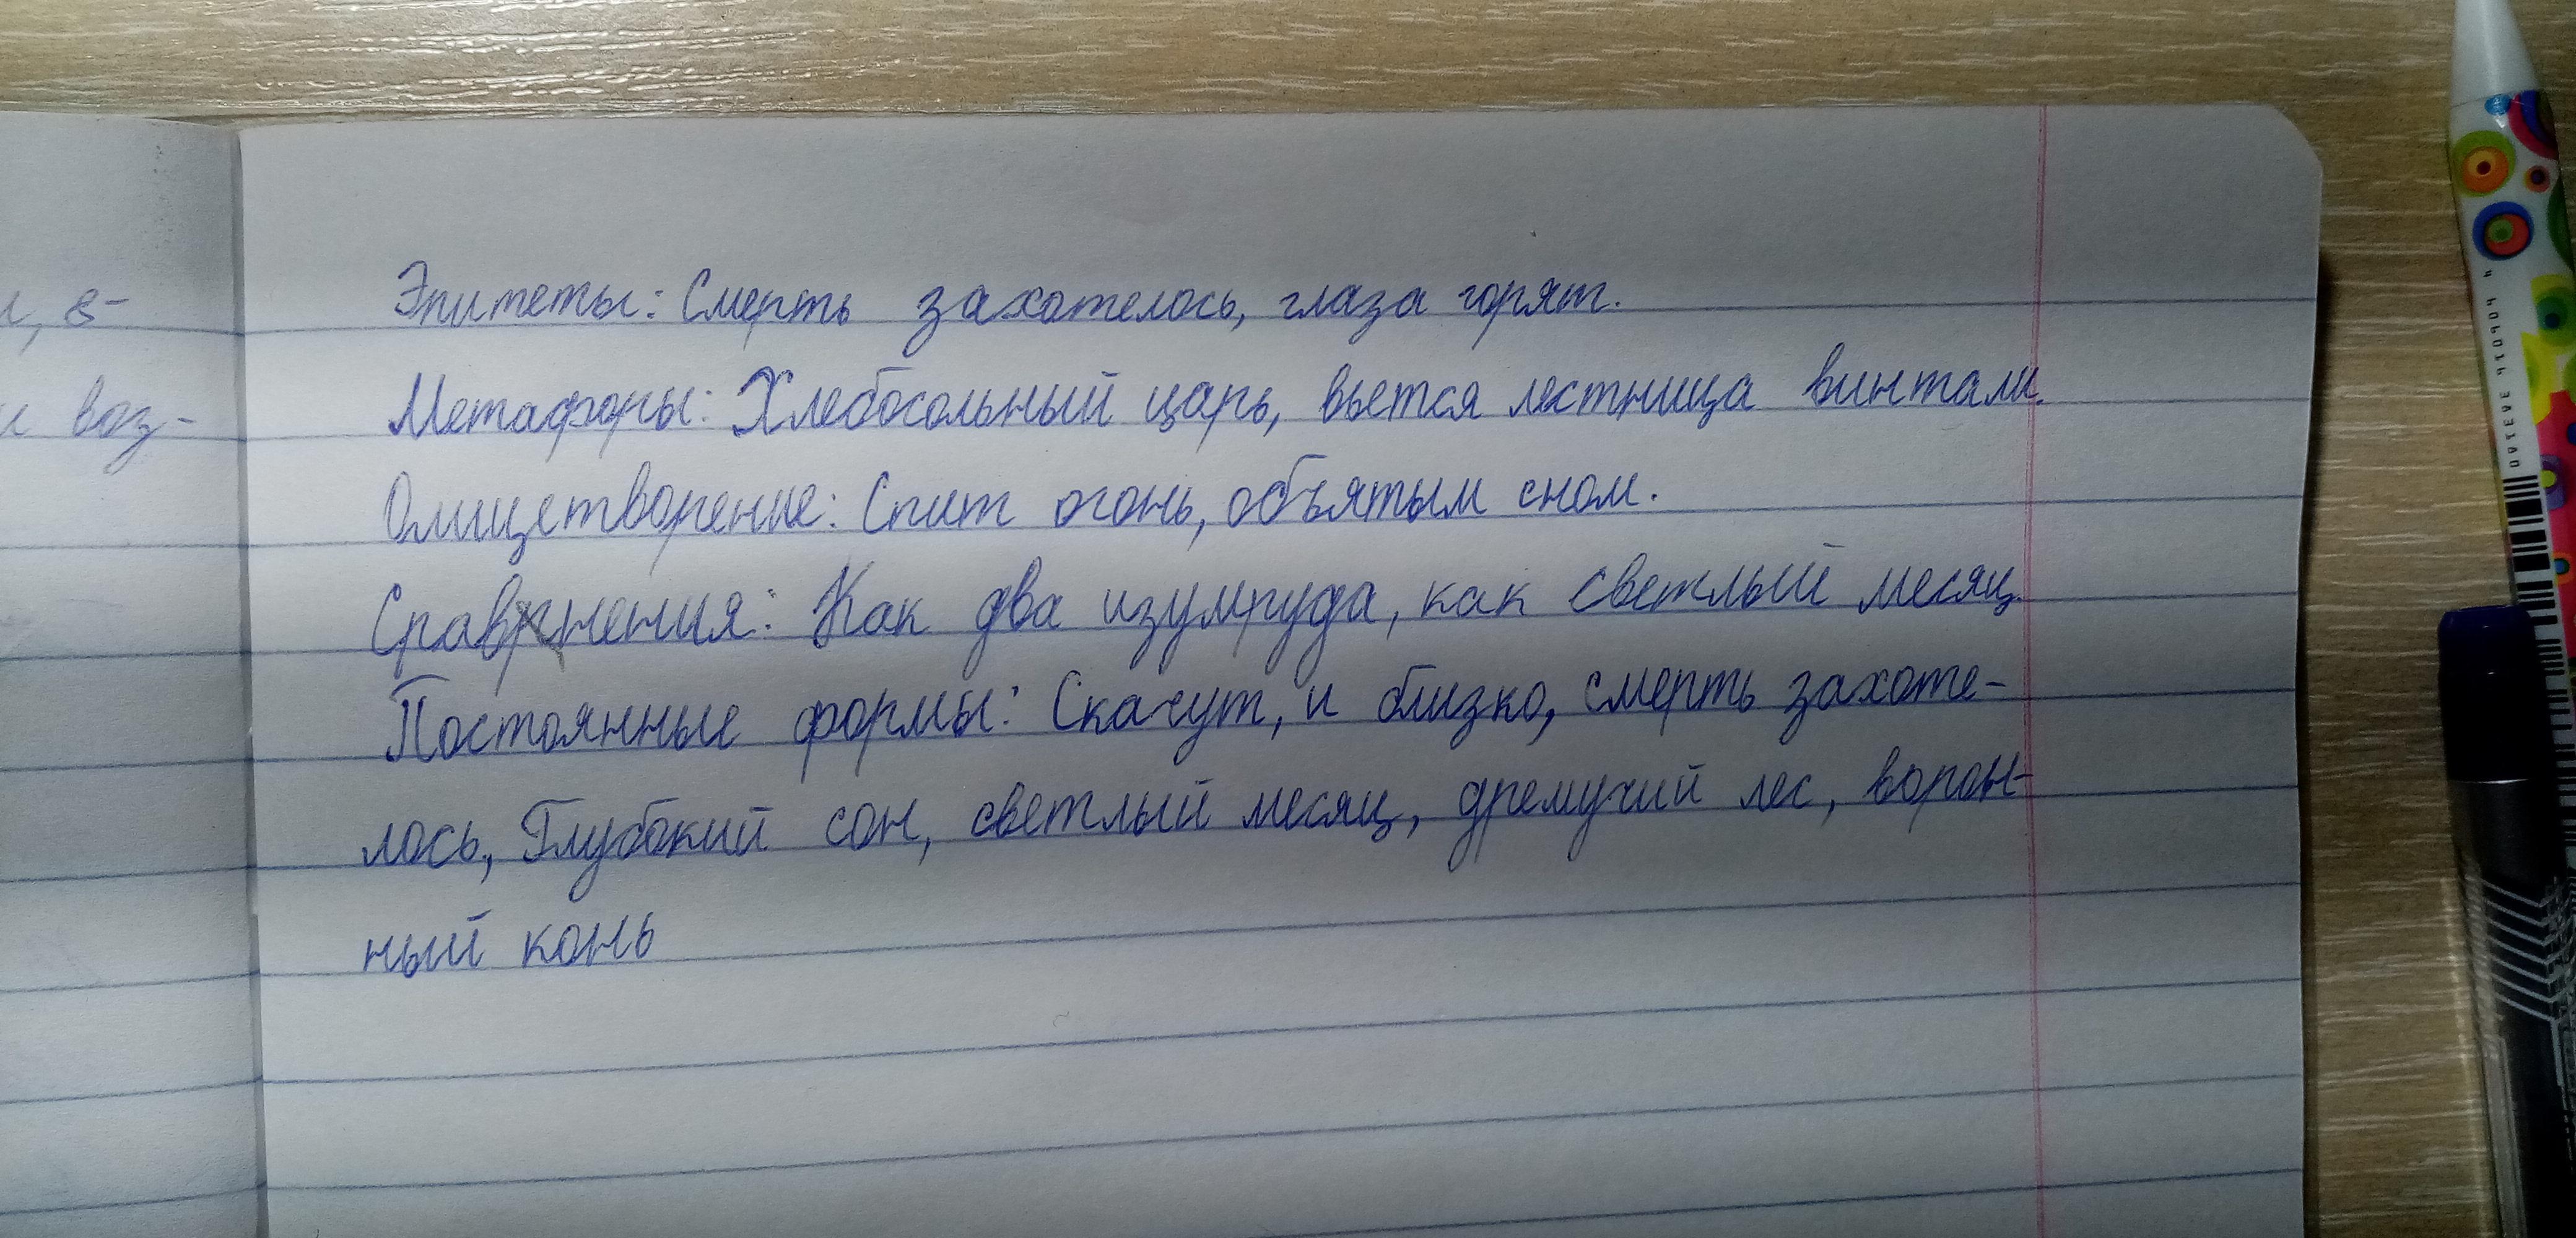 л, в-
и воз-
Эпитеты: Смерть захотелось, глаза горят.
Метафоры: Хлебосольный царь, вьется лестница винтами.
Олицетворение: Спит огонь, объятым сном.
Сравнения: Как два изумруда, как светлый месяц.
Постоянные формы: Скачут, и близко, смерть захоте-
лось, Глубокий сон, светлый месяц, дремучий лес, ворон-
ный конь